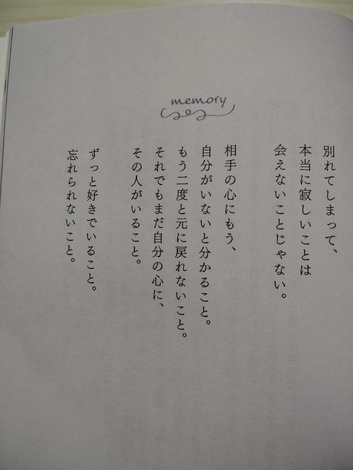 memory
別れてしまって、
本当に寂しいことは
会えないことじゃない。
相手の心にもう、
自分がいないと分かること。
もう二度と元に戻れないこと。
それでもまだ自分の心に、
その人がいること。
ずっと好きでいること。
忘れられないこと。